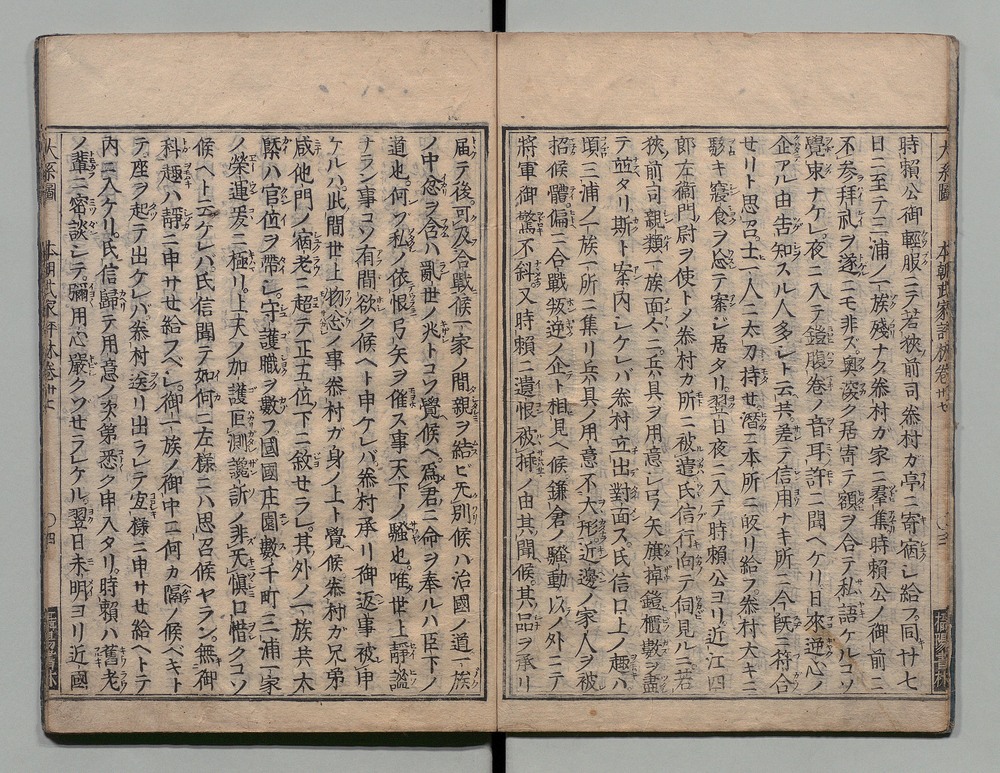 大系圖 本朝武家評林巻廿七 〇三
時賴公御輕服ニテ若狹前司泰村カ亭ニ寄宿レ給フ同廿七
日ニ至テ三浦ノ一族殘ナク泰村ガ家ニ羣集時賴公ノ御前ニ
不参拜礼ヲ遂ニモ非ズ奥深ク居寄テ額ヲ合テ私語ケルコソ
覺束ナケレ夜ニ入テ鎧腹巻ノ音耳許ニ聞ヘケリ日來逆心ノ
企アル由告知スル人多レト云共差テ信用ナキ所ニ今既ニ符合
セリト思召士一人ニ太刀持セ潜ニ本所ニ皈リ給フ泰村大キニ
駭キ寢食ヲ忘テ案レ居タリ翌日夜ニ入テ時賴公ヨリ近江四
郎左衞門尉ヲ使トメ泰村カ所ニ被遣氏信行向テ伺見ルニ若
狹前司親類一族面々ニ兵具ヲ用意レ弓矢旗掉鎧櫃數ヲ盡
テ竝タリ斯ト案内レケレバ泰村立出對面ス氏信口上ノ趣ハ
頃三浦ノ一族一所ニ集リ兵具ノ用意不大形近邊ノ家人ヲ被
招候體偏ニ合戰叛逆ノ企ト相見ヘ候鎌倉ノ騷動以ノ外ニテ
將軍御驚不斜又時賴ニ遺恨被挿ノ由其聞候其品ヲ承リ
届テ後可及合戰候一家ノ間親ヲ結ビ无別候ハ治國ノ道一族
ノ中忿ヲ含ハ亂世ノ兆トコソ覺候ヘ爲君ニ命ヲ奉ルハ臣下ノ
道也何ソ私ノ依恨弓矢ヲ催ス事天下ノ騷也唯世上靜謐
ナラン事コソ有間欲ク候ヘト申ケレバ泰村承リ御返事被申
ケルハ此間世上物忩ノ事泰村ガ身ノ上ト覺候泰村ガ兄弟
咸他門ノ宿老ニ超テ正五位下ニ敘セラレ其外ノ一族共大
槩ハ官位ヲ帶レ守護職ヲ數フ國國庄園數千町三浦一家
ノ榮運爰ニ極リ上天ノ加護叵測讒訴ノ非无愼ロ惜クコソ
候ヘト云ケレバ氏信聞テ如何ニ左樣ニハ思召候ヤラン無御
科趣ハ靜ニ申サセ給フベレ御一族ノ御中ニ何カ隔ノ候ベキト
テ座ヲ起テ出ケレバ泰村送リ出ラレテ宐樣ニ申サセ給ヘトテ
内ニ入ケリ氏信歸テ用意ノ次第悉ク申入タリ時賴ハ舊老
ノ輩ニ密談レテ彌用心嚴クソセラレケル翌日未明ヨリ近國
大系圖 本朝武家評林巻廿七 〇四